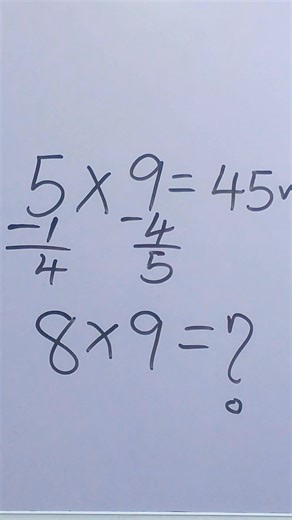 5 × 9 = 45
-1 -4
4 5
8 × 9 = ?